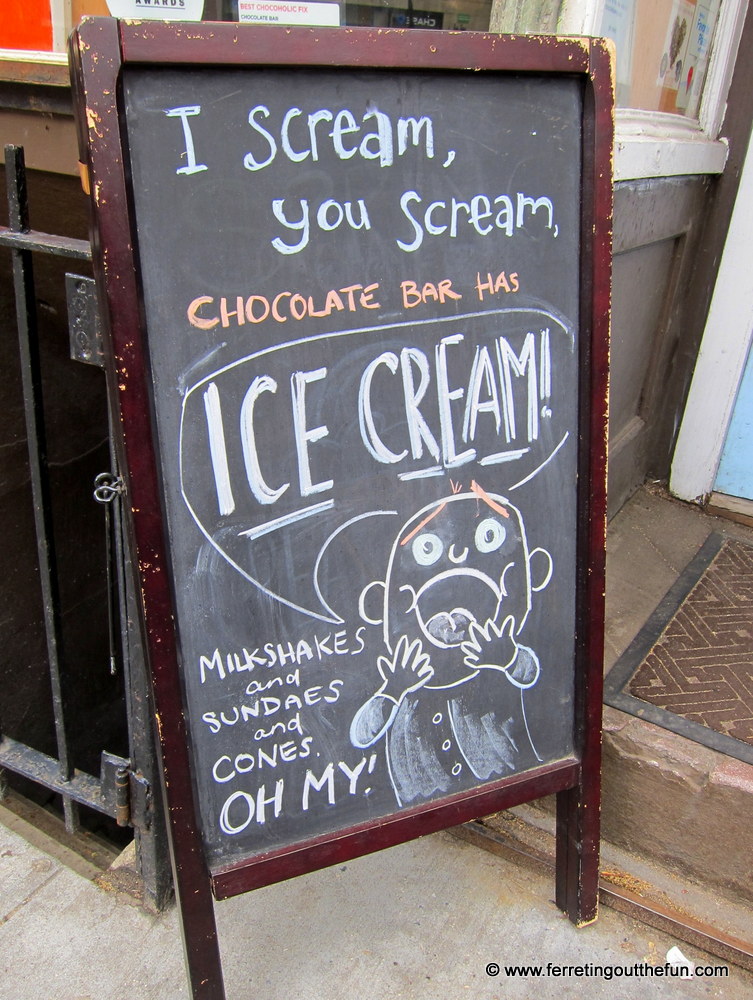 AWARDS
BEST CHOCOHOLIC FIX
CHOCOLATE BAR
I Scream,
you Scream,
CHOCOLATE BAR HAS
ICE CREAM!
MILKSHAKES
and
SUNDAES
and
CONES.
OH MY!
© www.ferretingoutthefun.com